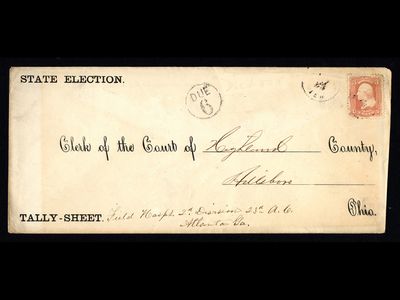 STATE ELECTION.
DUE 6
Clerk of the Court of Highland County,
Hillsboro
Ohio.
TALLY-SHEET. Field Hospt. 2d Division 23d A.C.
Atlanta Ga.